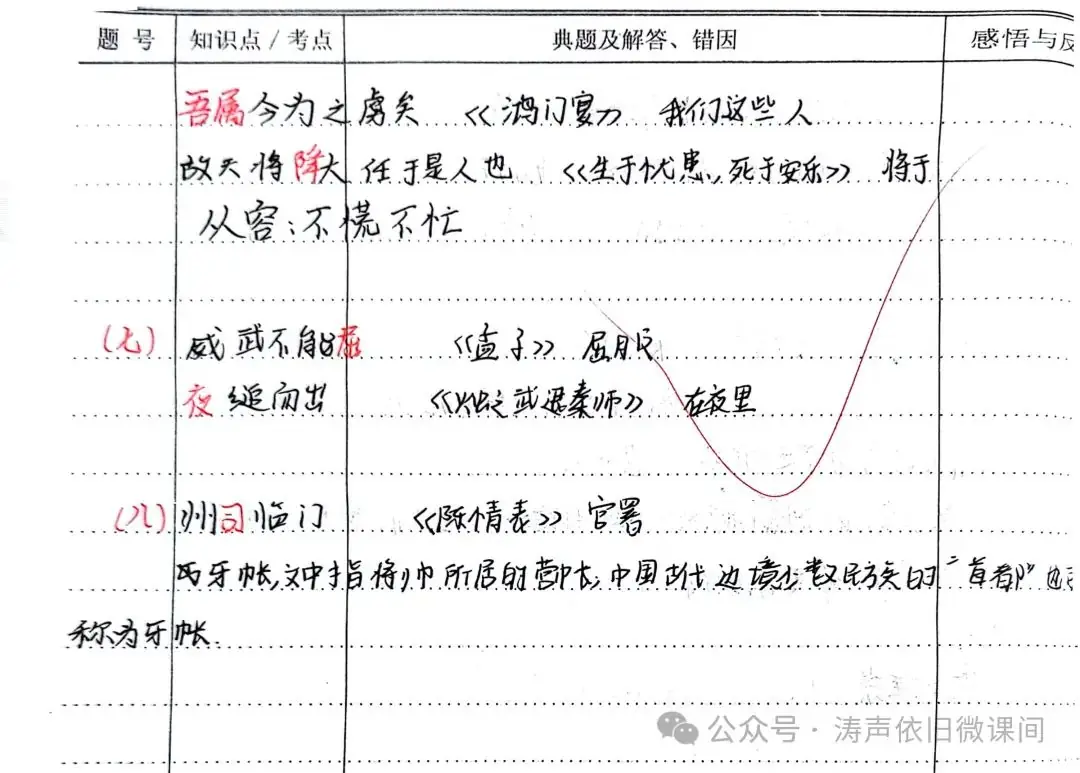 题 号 知识点/考点 典题及解答、错因 感悟与
吾属今为之虏矣 《鸿门宴》 我们这些人
故天将降大任于是人也 《生于忧患,死于安乐》 将于
从容:不慌不忙
(七) 威武不能屈 《孟子》 屈服
夜缒而出 《烛之武退秦师》 在夜里
(八) 州司临门 《陈情表》 官署
牙帐,文中指将帅所居的营帐,中国古代边境少数民族的"首都"也
称为牙帐.
公众号·涛声依旧微课间